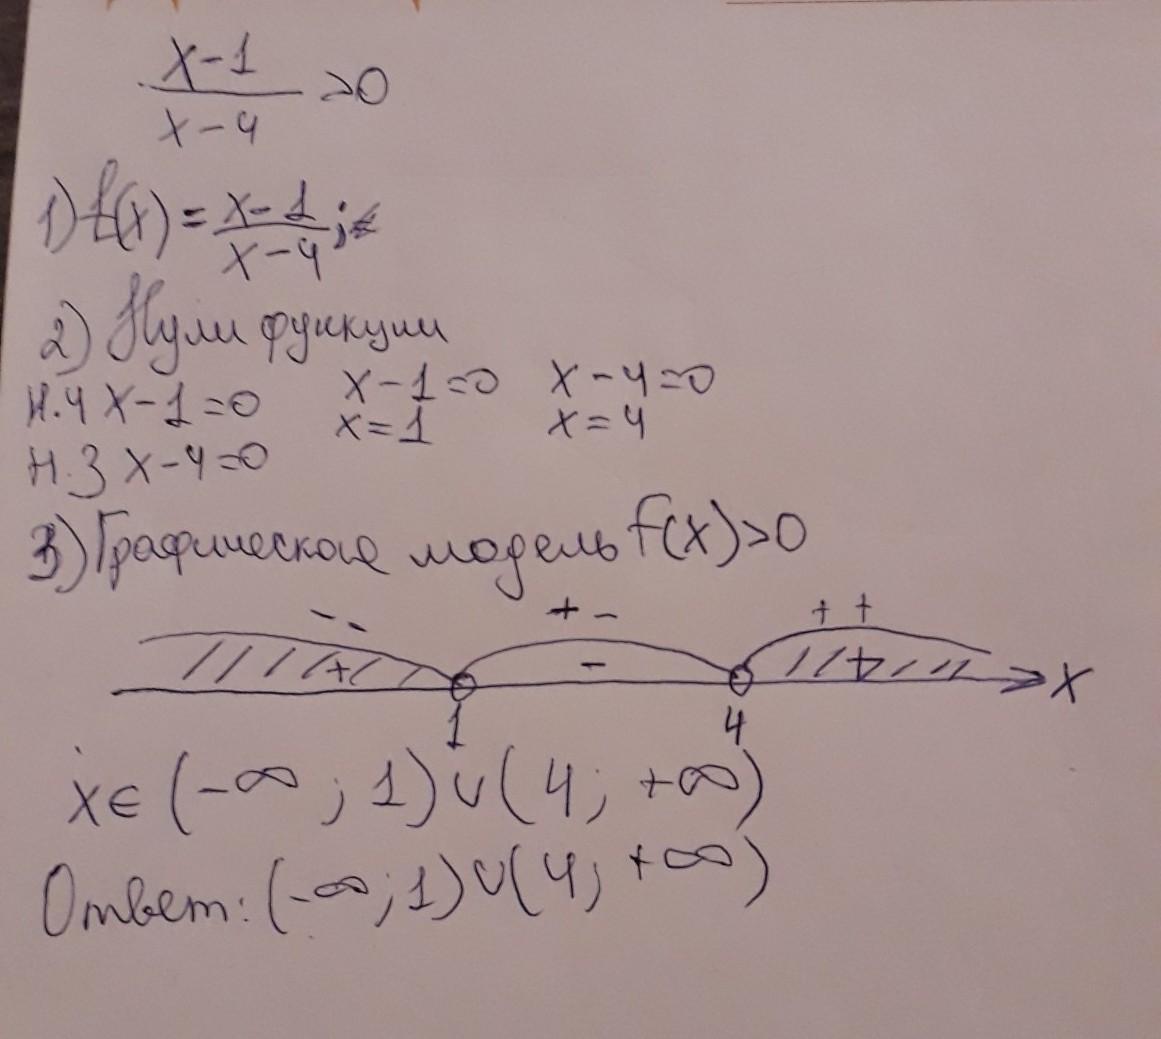 x-1
x-4 >0
1) f(x) = x-1
x-4 ;
2) Нули функции
Н.Ч x-1=0 x-1=0 x-4=0
Н.З x-4=0 x=1 x=4
3) Графическая модель f(x)>0
- - + - + +
+ - +
1 4 x
x∈(-∞; 1)∪(4; +∞)
Ответ: (-∞; 1)∪(4; +∞)